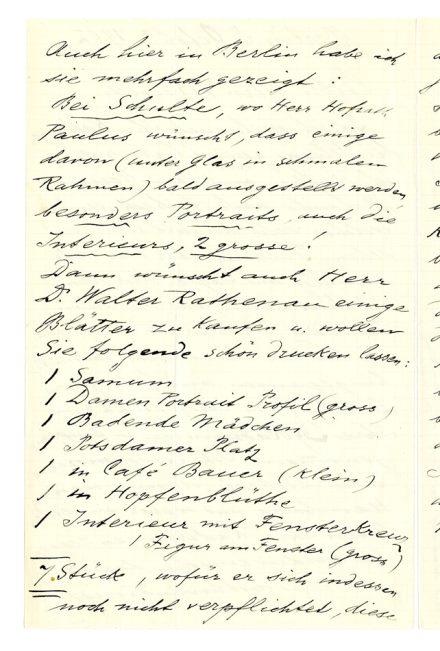 Auch hier in Berlin habe ich
sie mehrfach gezeigt:
Bei Schulte, wo Herr Hofrath
Paulus wünscht, dass einige
davon (unter Glas in schmalen
Rahmen) bald ausgestellt werden
besonders Portraits, auch die
Interieurs, 2 grosse!
Dann wünscht auch Herr
Dr. Walter Rathenau einige
Blätter zu kaufen u. wollen
Sie folgende schön drucken lassen:
1 Samum
1 Damen Portrait Profil (gross)
1 Badende Mädchen
1 Potsdamer Platz
1 in Café Bauer (klein)
1 in Hopfenblüthe
1 Interieur mit Fensterkreuz
1 Figur am Fenster (gross)
7 Stück, wofür er sich indessen
noch nicht verpflichtet, diese